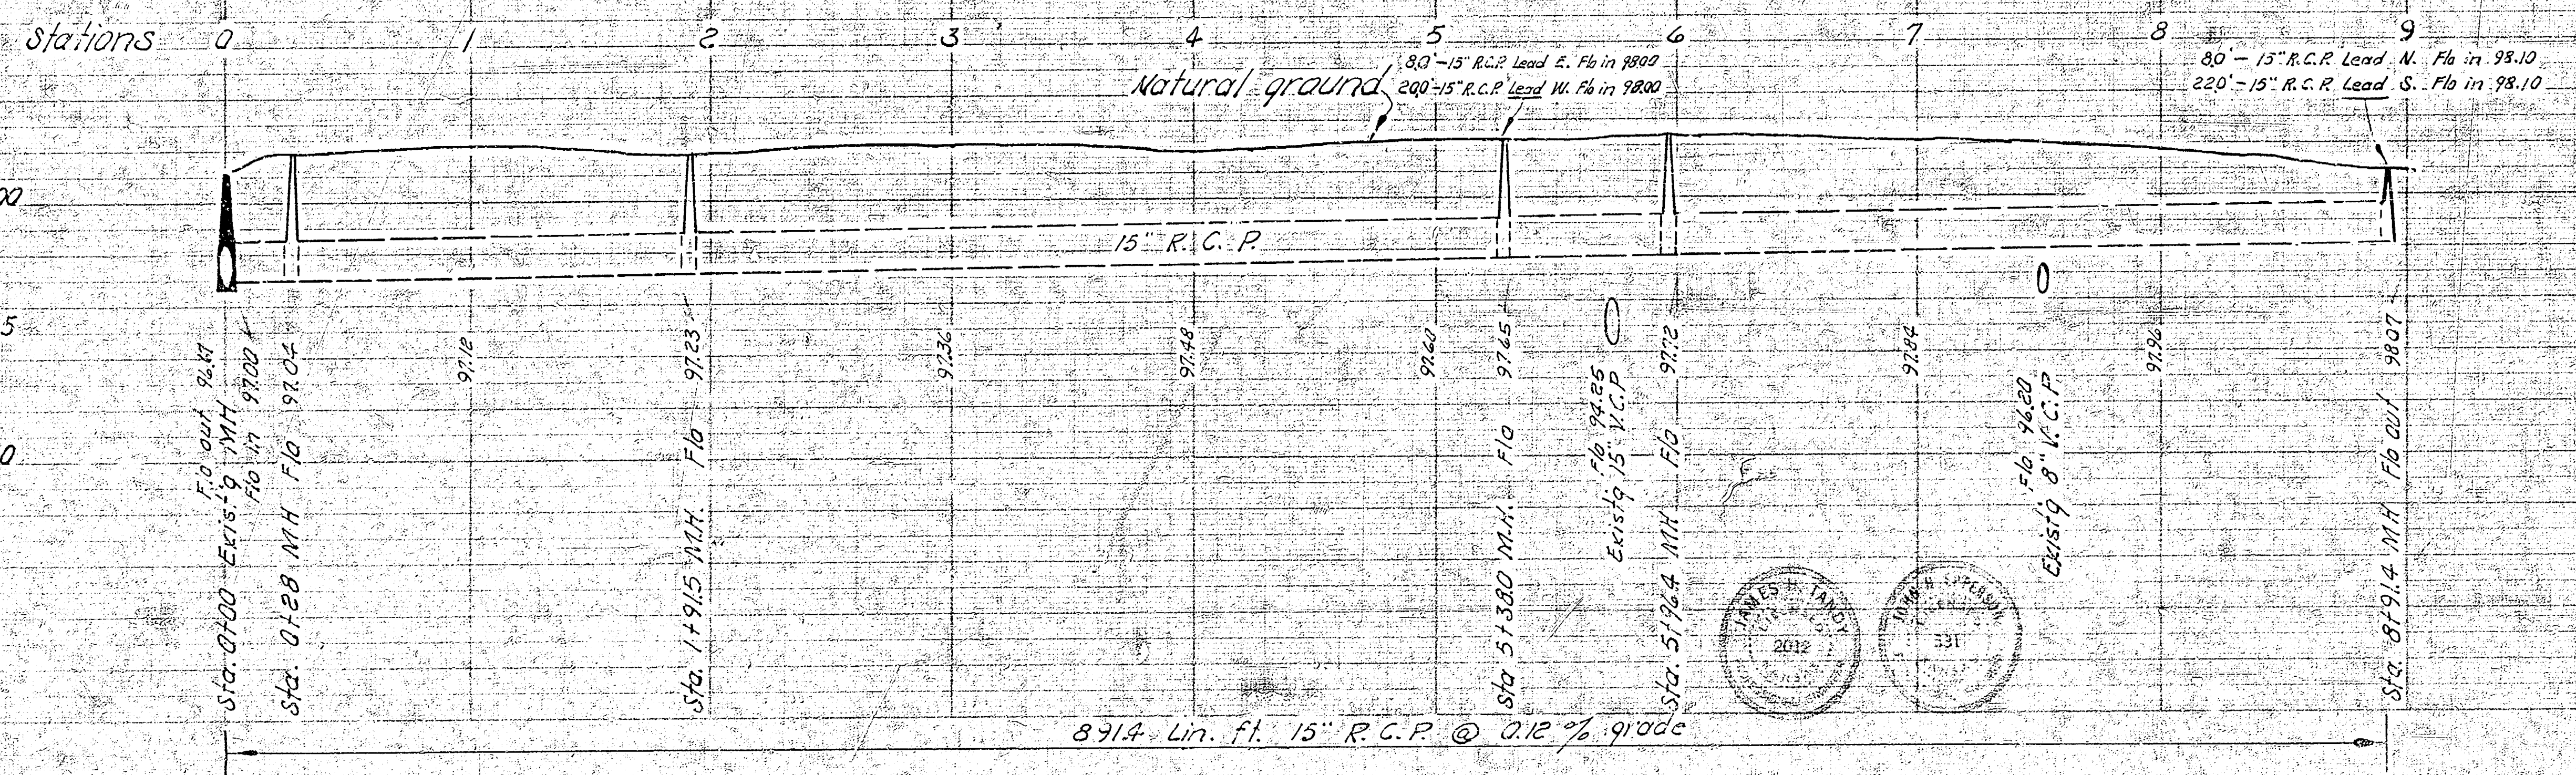 Stations 0 1 2 3 4 5 6 7 8 9
Natural ground
8.0'-15" R.C.P. Lead E. Flo in 98.00
20.0'-15" R.C.P. Lead W. Flo in 98.00
8.0'-15" R.C.P. Lead N. Flo in 98.10
22.0'-15" R.C.P. Lead S. Flo in 98.10
00
5
0
15" R.C.P.
Flo out 96.67
Sta. 0+00 Exist'g MH
Flo in 97.00
Sta. 0+28 MH Flo 97.04
97.12
Sta. 1+91.5 M.H. Flo 97.23
97.36
97.48
97.60
Sta 5+38.0 M.H. Flo 97.65
Flo 94.25
Exist'g 15" V.C.P.
Sta. 5+96.4 MH Flo 97.72
97.84
Flo. 96.20
Exist'g 8" V.C.P.
97.96
Sta. 8+91.4 MH Flo out 98.07
JAMES H. TANDY
2012
EPPERSON
331
891.4 Lin. ft. 15" R.C.P. @ 0.12% grade